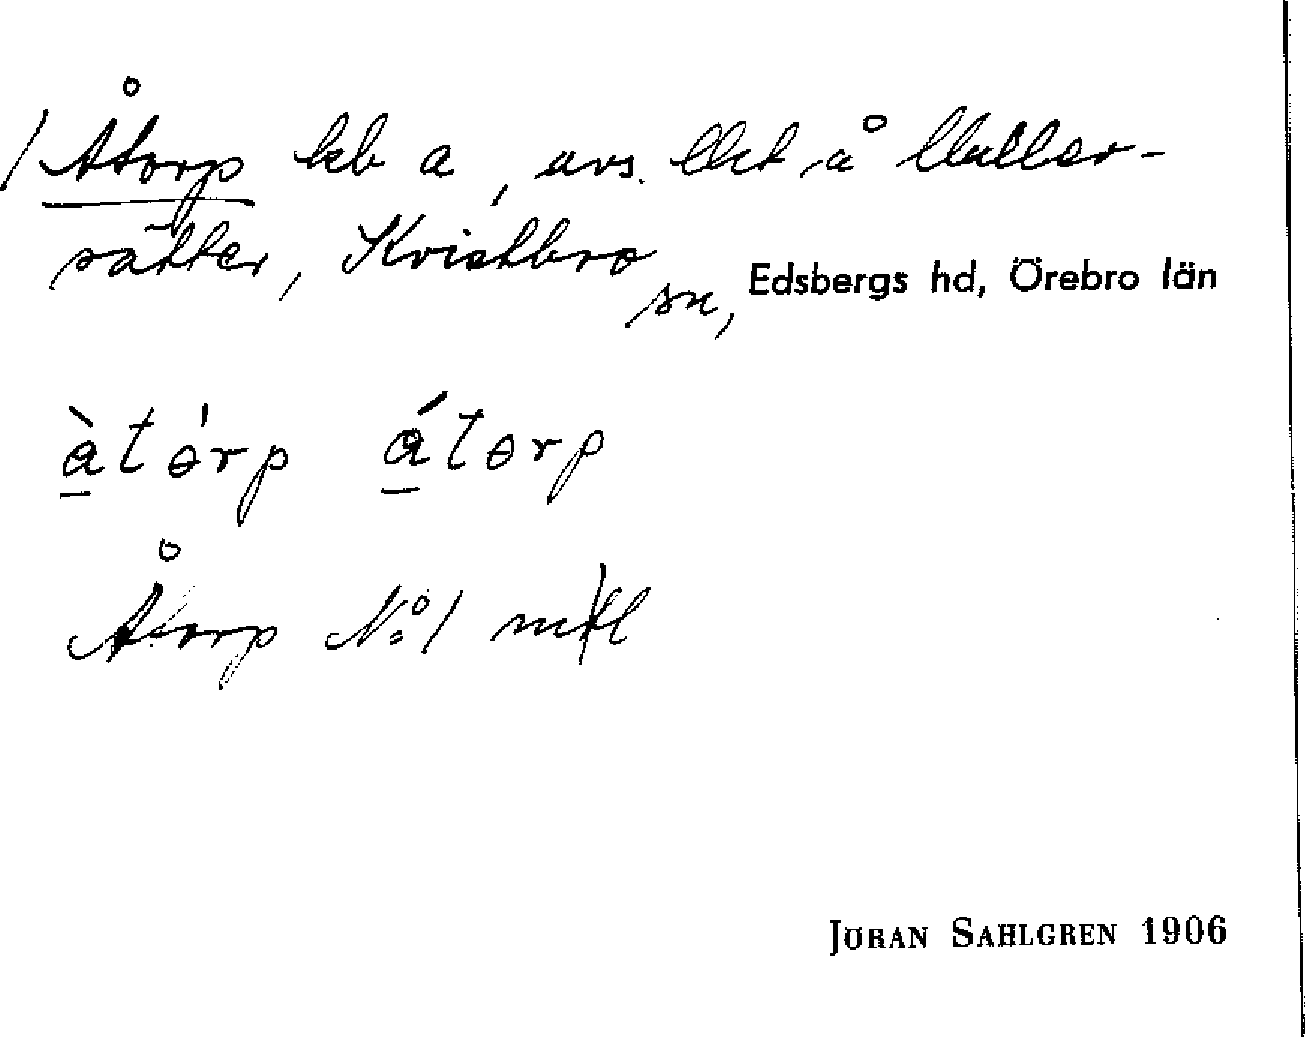 1 Åtorp lb a, avs. lht å Ulller-
sätter, Kvistbro
sn, Edsbergs hd, Örebro län
àtórp átorp
Åtorp No: 1 mtl
JÖRAN SAHLGREN 1906